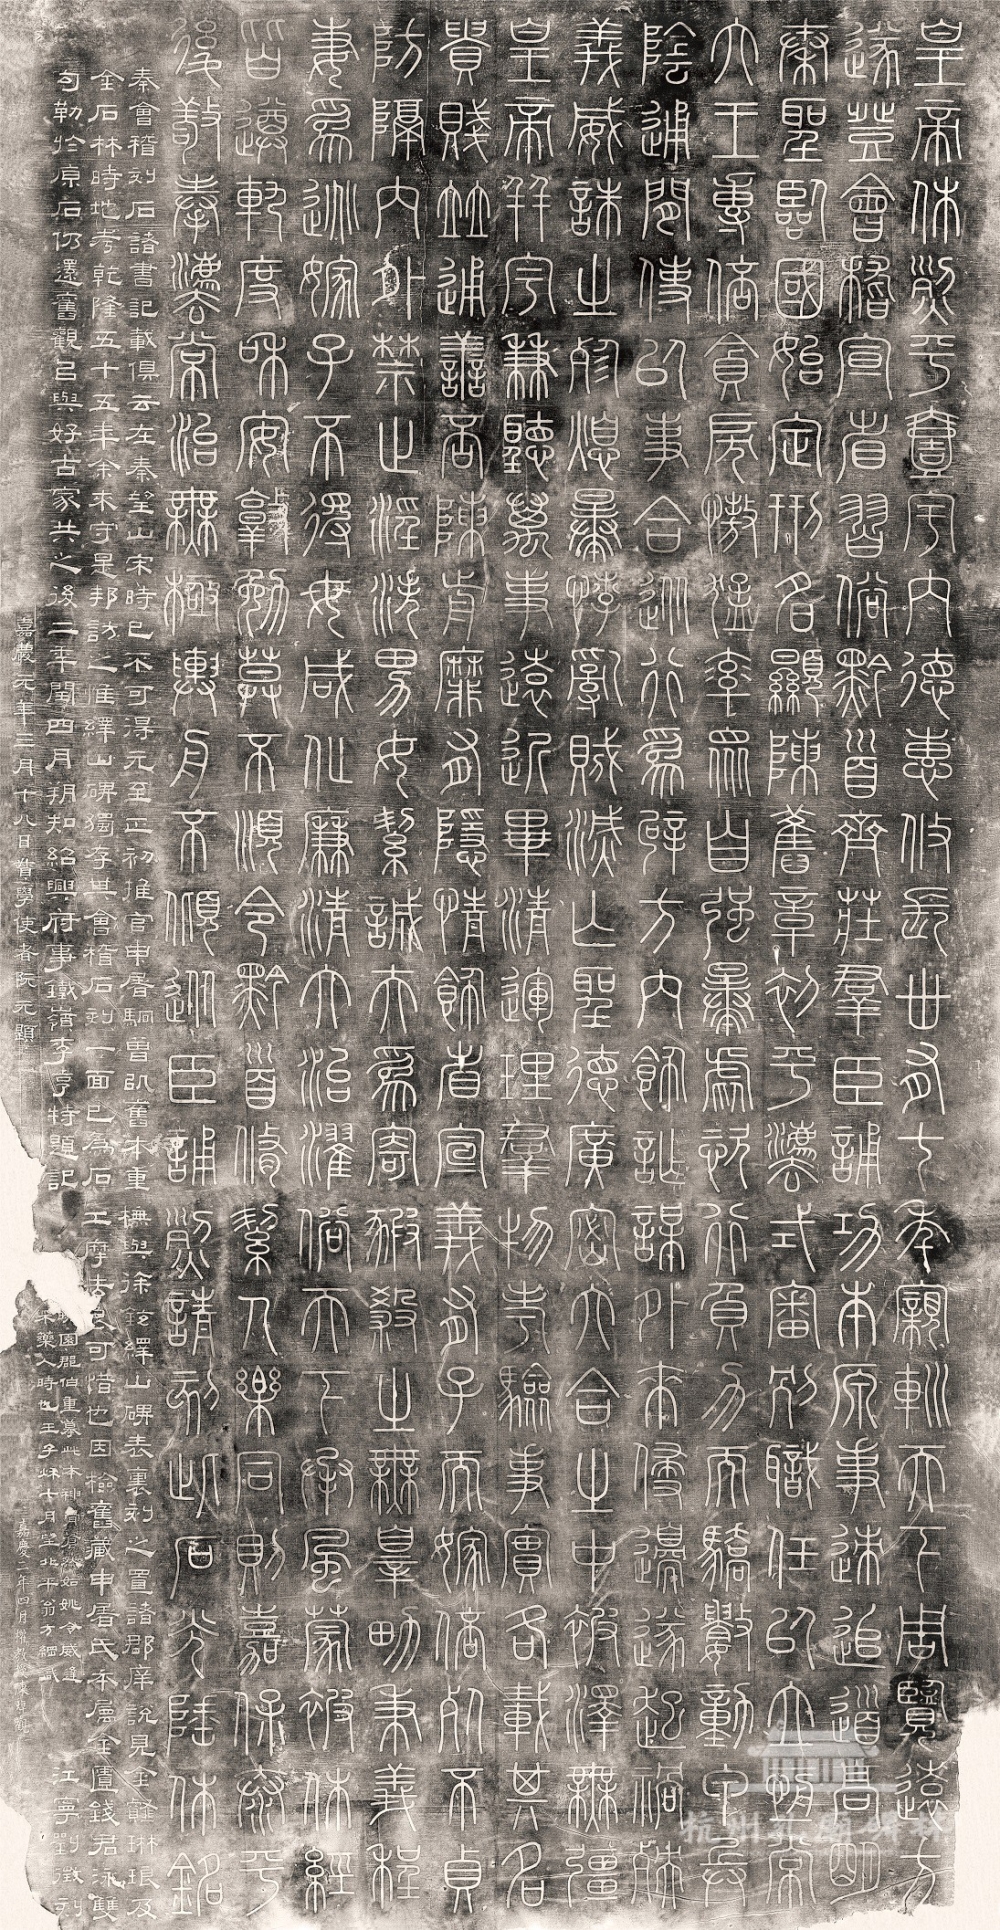 皇帝休烈平壹宇內德惠攸長丗有七年親䡅天下周覽遠方
遂登會稽宣省習俗黔首齊莊群臣誦功本原事速追道高明
秦聖臨國始定刑名顯陳舊章初平灋式審別職任以立恆常
六王專倍貪戾慠猛率眾自強暴虐恣行負力而驕數動甲兵
陰通閒使以事合從行為辟方內飾詐謀外來侵邊遂起禍殃
義威誅之殄熄暴悖亂賊滅亡聖德廣密六合之中被澤無疆
皇帝并宇兼聽萬事遠近畢清運理群物考驗事實各載其名
貴賤並通善否陳前靡有隱情飾省宣義有子而嫁倍死不貞
防隔內外禁止淫泆男女絜誠夫為寄豭殺之無辠男秉義程
妻為逃嫁子不得母咸化廉清大治濯俗天下承風蒙被休經
皆遵軌度和安敦勉莫不順令黔首脩絜人樂同則嘉保泰平
後敬奉灋常治無極輿舟不傾從臣誦烈請刻此石光陲休銘
秦會稽刻石諸書記載俱云在秦望山宋時已不可得元至正初推官申屠駉曾以舊本重橅與徐鉉繹山碑表裏刻之置諸郡庠說見金薤琳琅及
金石林時地考乾隆五十五年余來守是邦訪之惟繹山碑獨存其會稽石刻一面已為石工摩去良可惜也因檢舊藏申屠氏本屬金匱錢君泳雙
勾勒於原石仍還舊觀以與好古家共之後二年閏四月朔知紹興府事鐵嶺李亨特題記
江寧劉徵刻
嘉慶元年三月十八日督學使者阮元題
園羆伯重摹此本神儼然如姚令威逢
采藥人時也壬子秋十月望北平翁方綱識
嘉慶二年四月
杭州孔廟碑林